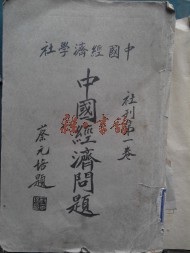 中國經濟學社
社刊第一卷
中國經濟問題
蔡元培題